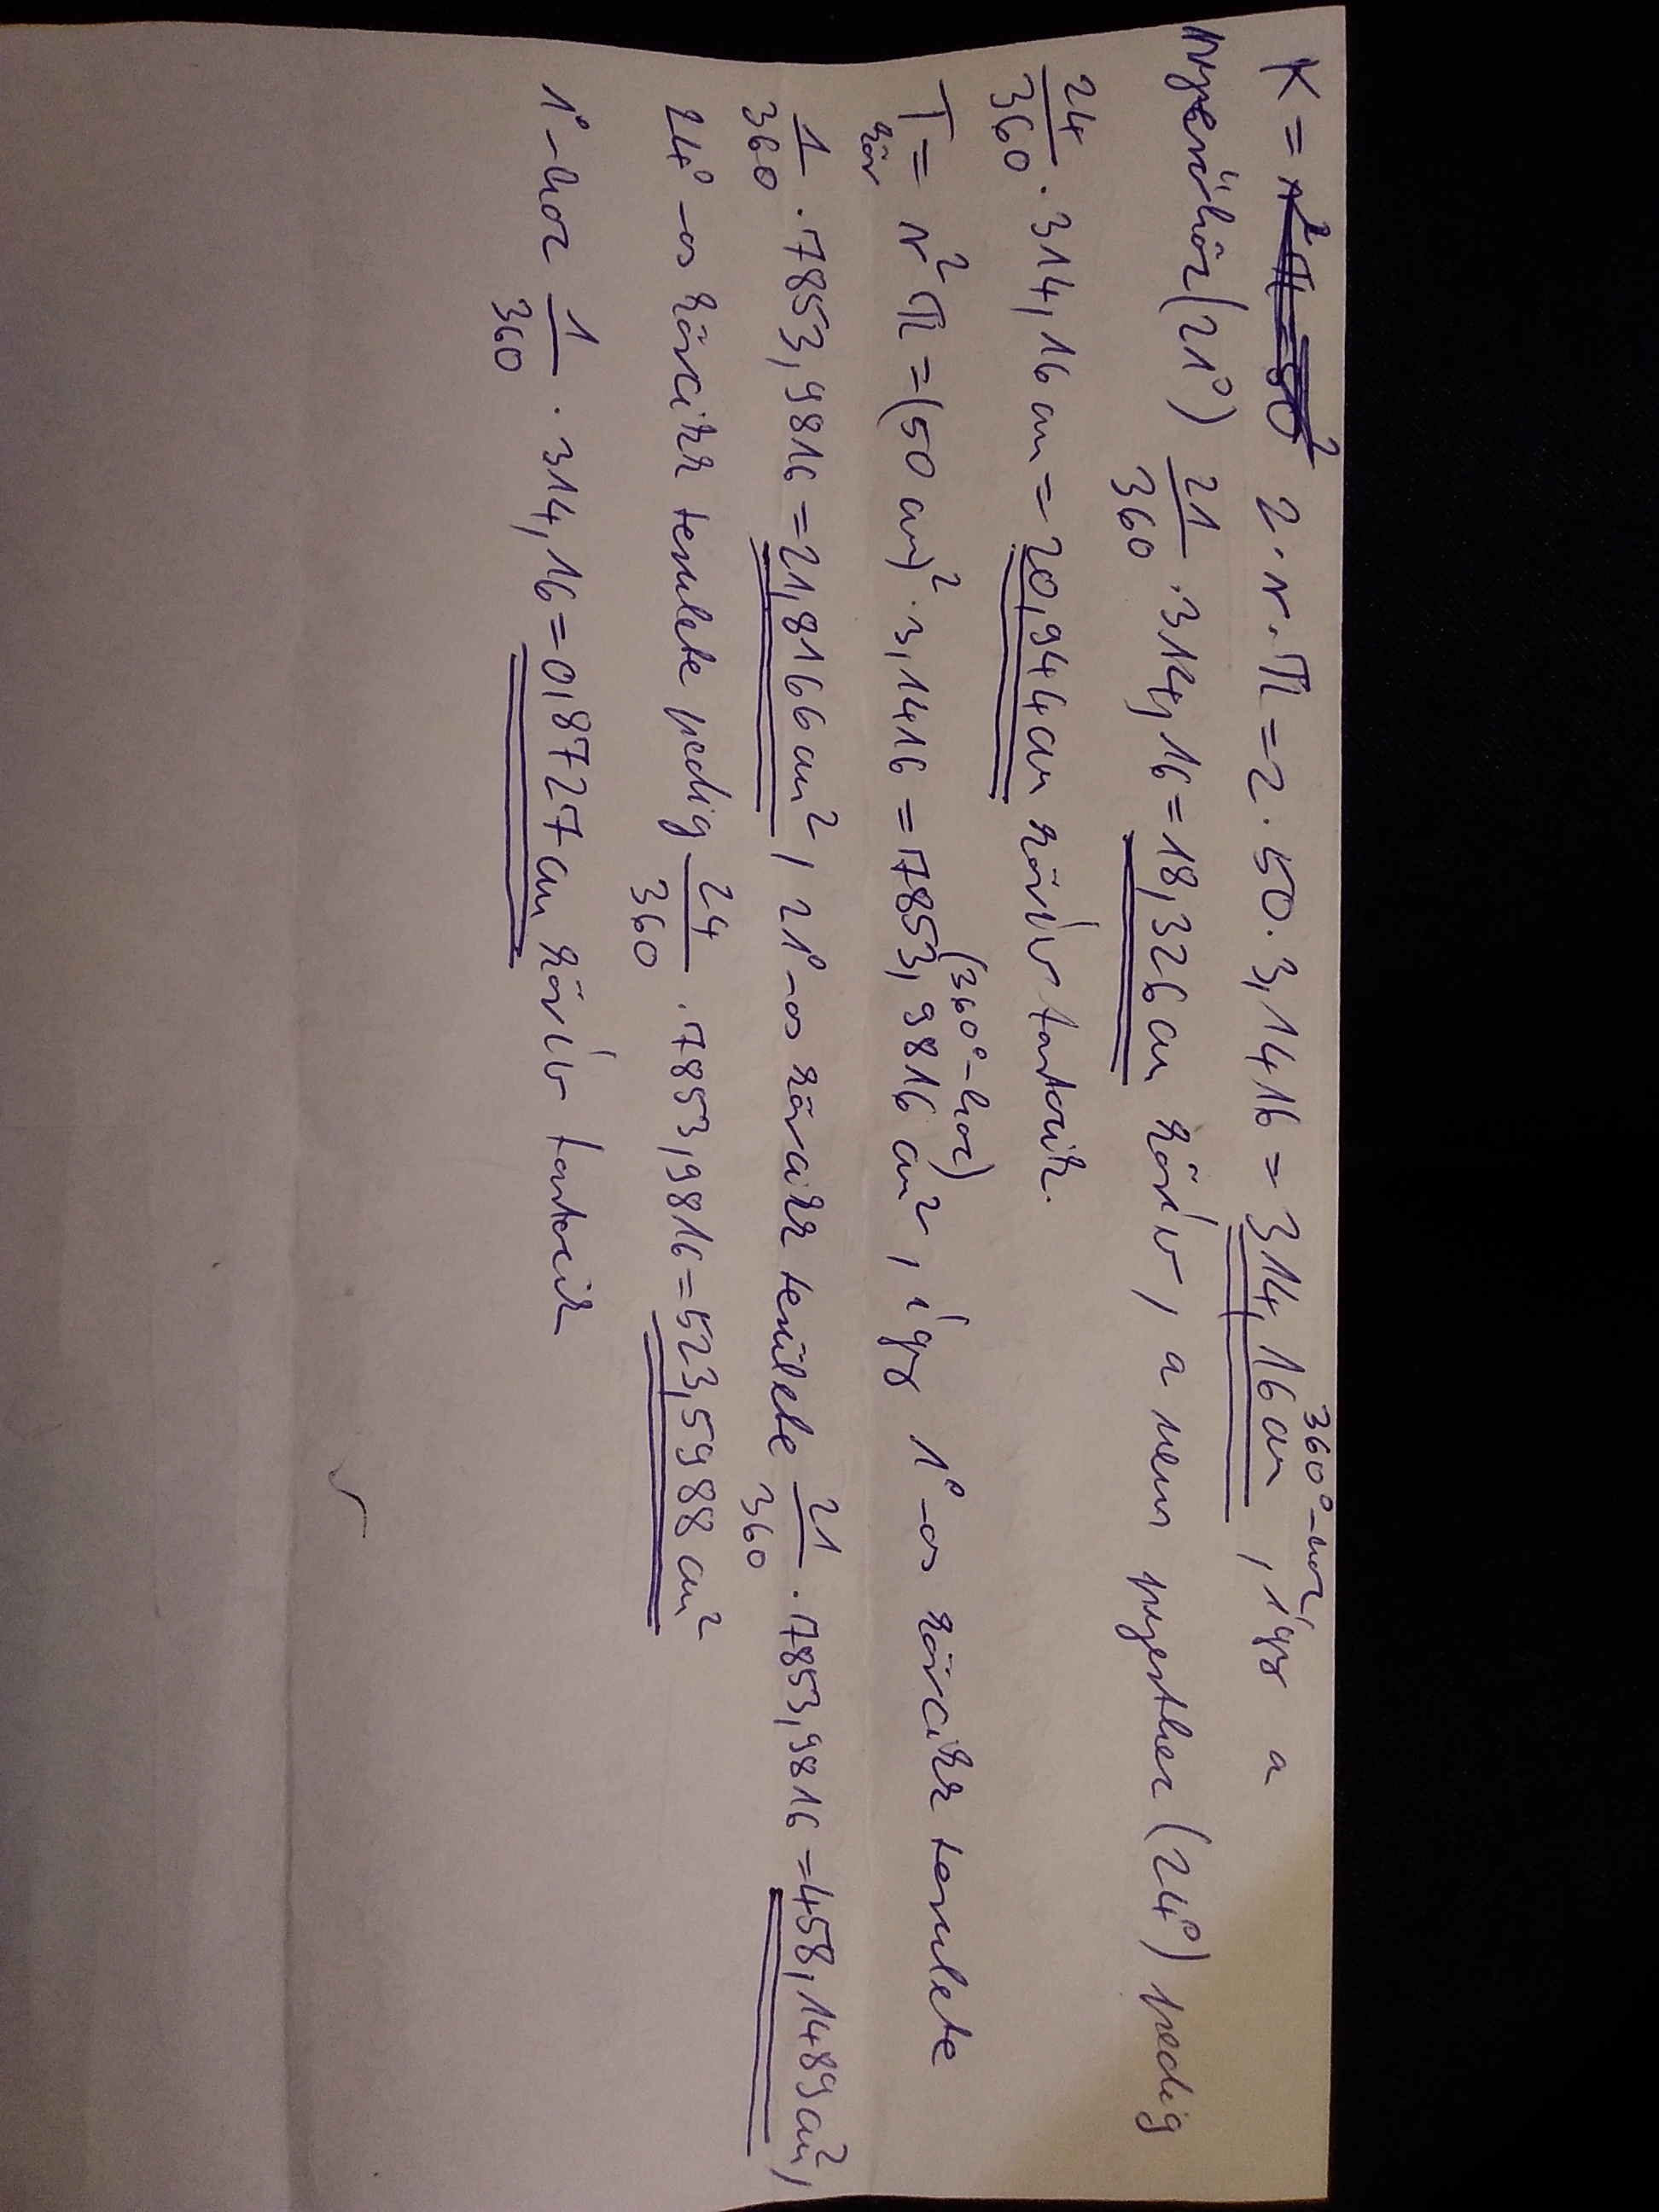 K = 2·r·π = 2·50·3,1416 = 314,16 cm 360°-hoz, így a
nyerőhöz (21°) 21/360 · 314,16 = 18,326 cm körív, a nem nyerthez (24°) pedig
24/360 · 314,16 cm = 20,944 cm körív tartozik.
T kör = r²π = (50 cm)² · 3,1416 = 7853,9816 cm² (360°-hoz), így 1°-os körcikk területe
1/360 · 7853,9816 = 21,8166 cm², 21°-os körcikk területe 21/360 · 7853,9816 = 458,1489 cm²,
24°-os körcikk területe pedig 24/360 · 7853,9816 = 523,5988 cm²
1°-hoz 1/360 · 314,16 = 0,8727 cm körív tartozik